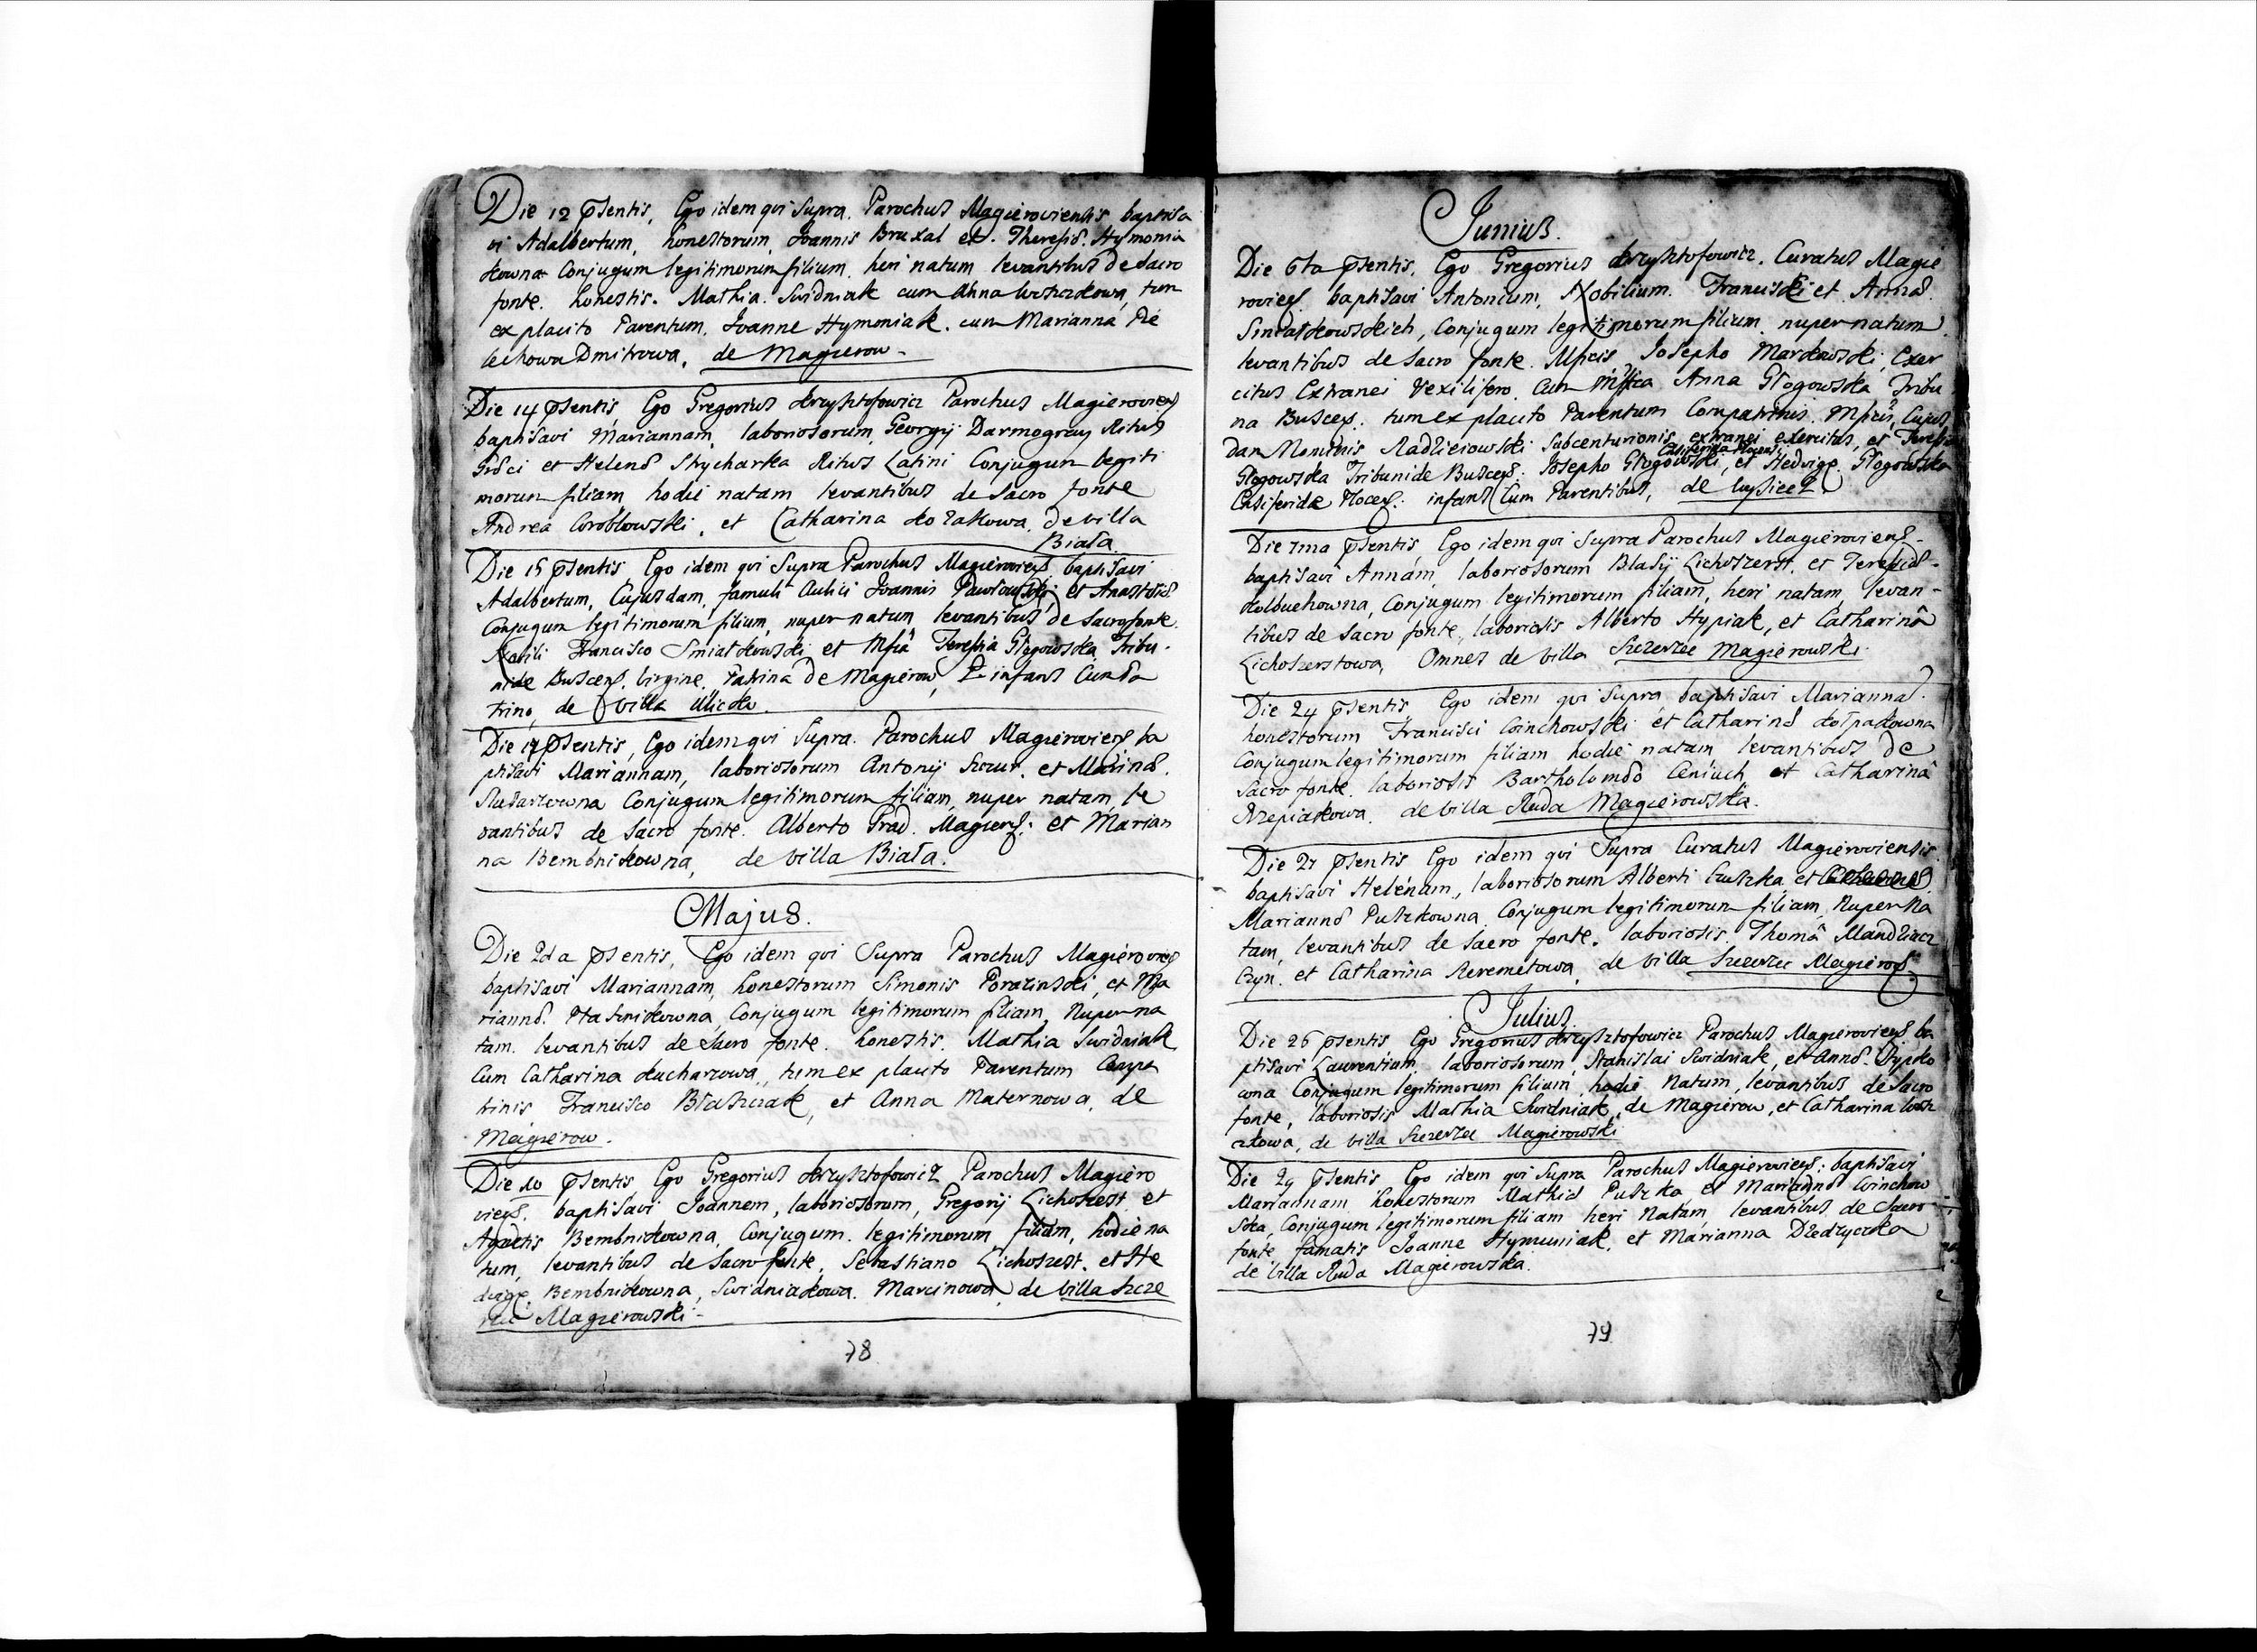 Die 12 Psentis, Ego idem qvi Supra. Parochus Magieroviensis baptisa
vi Adalbertum, honestorum, Joannis Bruxal et. Theresiæ. Hymonia
kowna Conjugum legitimorum filium. heri natum levantibus de Sacro
fonte. honestis. Mathia. Swidniak cum Anna tum
ex placito Parentum. Joanne Hymoniak. cum Marianna Pie
lechowa Dmitrowa. de Magierow -
Die 14 Psentis, Ego Gregorius Krzysztofowicz Parochus Magieroviens
baptisavi Mariannam, laboriosorum, Georgij Darmogray Ritus
Græci et Helenæ Strycharka Ritus Latini Conjugum legiti
morum filiam, hodie natam levantibus de Sacro fonte
Andrea Groblowski, et Catharina Kozakowa. de villa
Biała
Die 15 Psentis Ego idem qvi Supra Parochus Magieroviens baptisavi
Adalbertum, Cujusdam, famuli Aulici Joannis Pawłowski et Anastasiæ
Conjugum legitimorum filium, nuper natum levantibus de Sacro fonte.
Nobili Francisco Smiatkowski et Mfca Teresia Głogowska Tribu-
nide Buscens. Virgine. Patrina de Magierow, infans Cum Pa
trino, de villa Ulicko.
Die 17 Psentis, Ego idem qvi Supra. Parochus Magieroviens ba
ptisavi Mariannam, laboriosorum Antonij Szczur. et Marinæ.
Conjugum legitimorum filiam, nuper natam, le
vantibus de Sacro fonte. Alberto Grad. Magierens: et Marian
na Bembnikowna, de villa Biała.
Majus.
Die 2da Psentis, Ego idem qvi Supra Parochus Magierovies
baptisavi Mariannam, honestorum Simonis Porazinski, et Ma
riannæ. Ptasznikowna, Conjugum legitimorum filiam, Nuper na
tam. levantibus de Sacro fonte. honestis. Mathia Swidniak
Cum Catharina Kucharzowa, tum ex placito Parentum Compa
trinis Francisco Błaszczak, et Anna Maternowa, de
Magierow.
Die 10 Psentis Ego Gregorius Krzysztofowicz Parochus Magiero
viens. baptisavi Joannem, laboriosorum, Gregorij Lichoszest et
Agnetis Bembnikowna, Conjugum. legitimorum filium, hodie na
tum, levantibus de Sacro fonte, Sebastiano Lichoszest. et He
dvige. Bembnikowna, Swidniakowa. Marcinowa, de villa Szcze
Magierowski -
78
Junius.
Die 6ta Psentis, Ego Gregorius Krzysztofowicz. Curatus Magie
roviens. baptisavi Antonium, Nobilium. Francisci et Annæ.
Smiatkowskich, Conjugum legitimorum filium, nuper natum
levantibus de Sacro fonte. Mfcis Josepho Markowski, Exer
citus Extranei Vexilifero. Cum Mffica Anna Głogowska Tribu
na Buscens. tum ex placito Parentum Compatrinis. Mfcis, Cujus
dam Nominis Radzieiowski Subcenturionis extranei exercitus, et Teresia
Głogowska Tribunide Buscens. Josepho Głogowski, et Hedvige. Głogowska
Ensiferide Plocens: infans Cum Parentibus, de
Die 7ma Psentis, Ego idem qvi Supra Parochus Magieroviens-
baptisavi Annam, laboriosorum Blasij Lichoszerst. et Teresiæ-
Kolbuchowna, Conjugum legitimorum filiam, heri natam, levan-
tibus de Sacro fonte, laboriosis Alberto Hypiak, et Catharinâ
Lichoszerstowa, Omnes de villa Szczerzec Magierowski.
Die 24 Psentis Ego idem qvi Supra, baptisavi Mariannã.
honestorum Francisci Goinchowski et Catharinæ Kołpakowna
Conjugum legitimorum filiam hodie natam, levantibus de
Sacro fonte. laboriosis Bartholomæo Ceniuch et Catharinâ
Rzepiakowa. de villa Ruda Magierowska.
Die 27 Psentis Ego idem qvi Supra Curatus Magieroviensis
baptisavi Helenam, laboriosorum Alberti et
Mariannæ Puszkowna Conjugum legitimorum filiam, Nuper Na
tam, levantibus de Sacro fonte. laboriosis. Thomâ Mandziacz
czyn. et Catharina Seremetowa, de villa Szczerzec Magierows
Julius.
Die 26 Psentis Ego Gregorius Krzysztofowicz Parochus Magieroviens. ba
ptisavi Laurentium. laboriosorum, Stanislai Swidniak, et Annæ. Hypko
wna Conjugum legitimorum filium, hodie Natum, levantibus de Sacro
fonte, laboriosis Mathia Swidniak, de Magierow, et Catharina
de villa Szczerzec Magierowski
Die 29 Psentis Ego idem qvi Supra Parochus Magieroviens: baptisavi
Mariannam honestorum Mathiæ Puszka, et Mariannæ Goinchow
ska, Conjugum legitimorum filiam heri Natam, levantibus de Sacro
fonte, famatis Joanne Hymuniak, et Marianna Dzedzyczka
de villa Ruda Magierowska.
79